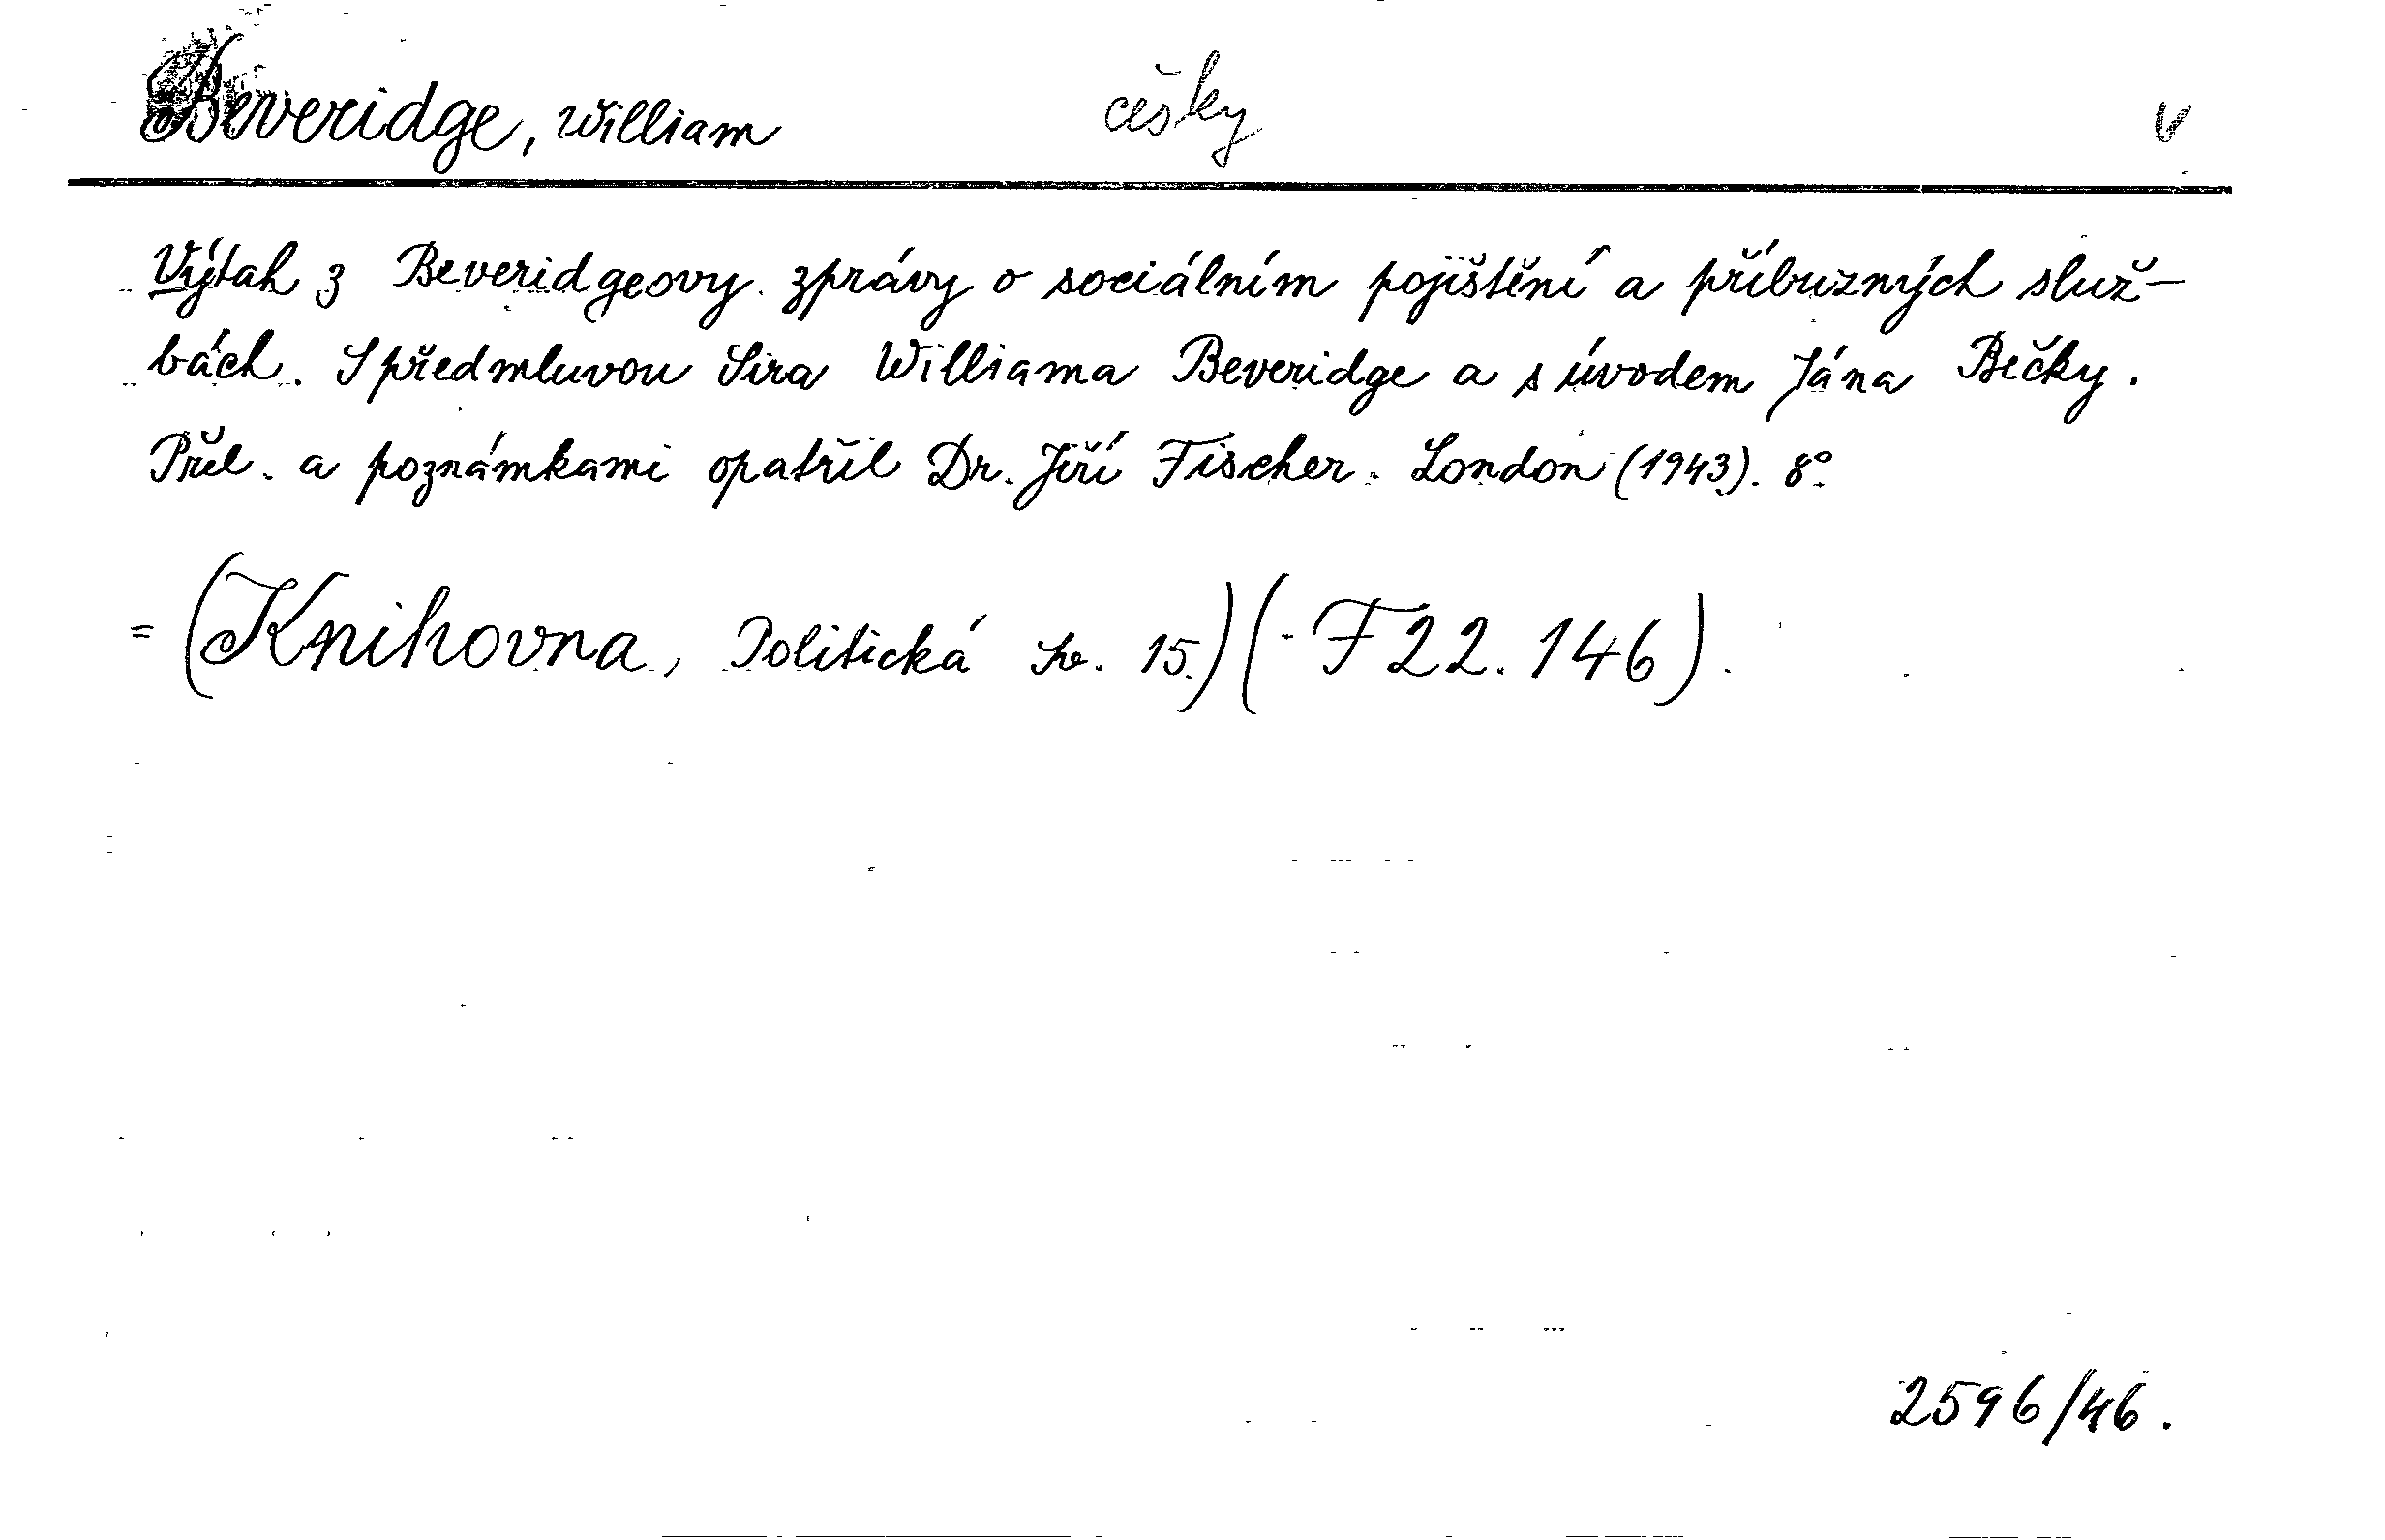 Beveridge, William česky v
Výtah z Beveridgeovy zprávy o sociálním pojištění a příbuzných služ-
bách. S předmluvou Sira Williama Beveridge a s úvodem Jána Bečky.
Přel. a poznámkami opatřil Dr. Jiří Fischer. London (1943). 8°.
= (Knihovna, Politická sv. 15.) (- F 22.146).
2596/46.